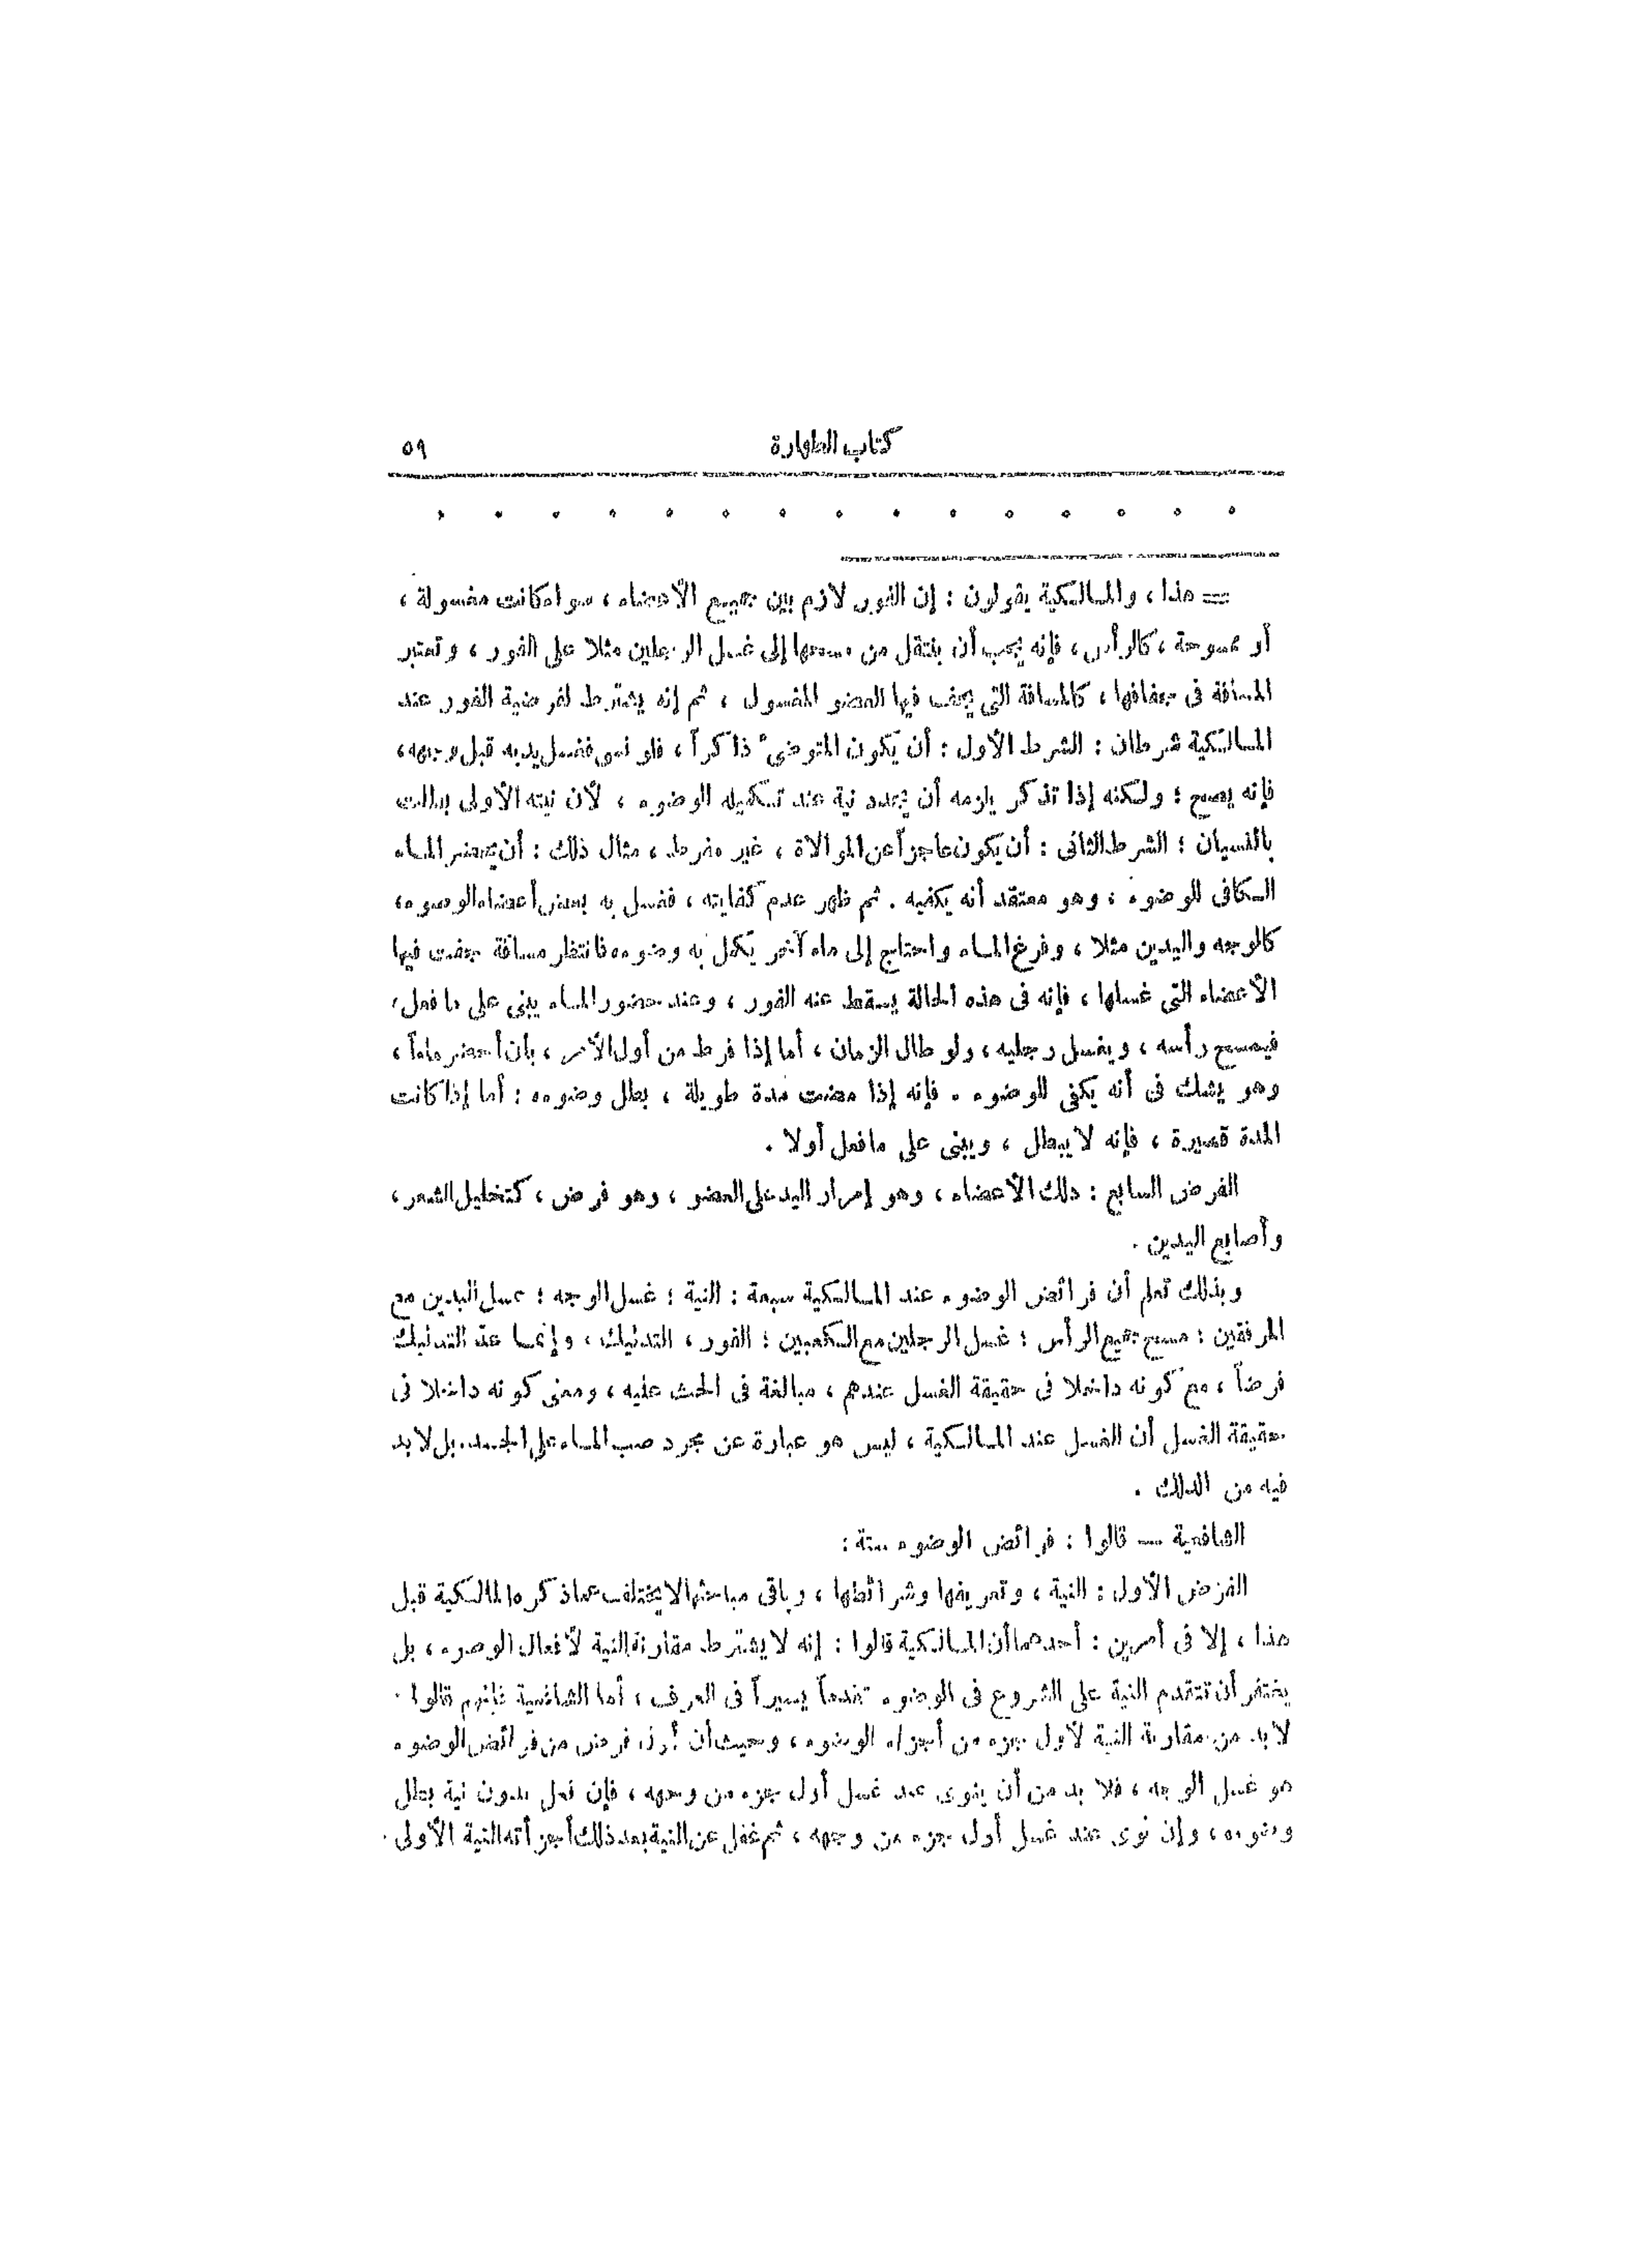 كتاب الطهارة ٥٩
= هذا ، والمالكية يقولون : إن الفور لازم بين جميع الأعضاء ، سواء كانت مغسولة ،
أو ممسوحة ، كالرأس ، فإنه يجب أن ينتقل من مسحها إلى غسل الرجلين مثلا على الفور ، وتعتبر
المسافة فى جفافها ، كالمسافة التى يجف فيها العضو المغسول ، ثم إنه يشترط لفرضية الفور عند
المالكية شرطان : الشرط الأول : أن يكون المتوضئ ذاكراً ، فلو نسى فغسل يديه قبل وجهه ،
فإنه يصح ؛ ولكنه إذا تذكر يلزمه أن يجدد نية عند تكميله الوضوء ، لأن نيته الأولى بطلت
بالنسيان ؛ الشرط الثانى : أن يكون عاجزاً عن الموالاة ، غير مفرط ، مثال ذلك : أن يحضر الماء
الكافى للوضوء ، وهو معتقد أنه يكفيه . ثم ظهر عدم كفايته ، فغسل به بعض أعضاء الوضوء ،
كالوجه واليدين مثلا ، وفرغ الماء واحتاج إلى ماء آخر يكمل به وضوءه فانتظر مسافة جفت فيها
الأعضاء التى غسلها ، فإنه فى هذه الحالة يسقط عنه الفور ، وعند حضور الماء يبنى على ما فعل ،
فيمسح رأسه ، ويغسل رجليه ، ولو طال الزمان ، أما إذا فرط من أول الأمر ، بأن أحضر ماءاً ،
وهو يشك فى أنه يكفى للوضوء . فإنه إذا مضت مدة طويلة ، بطل وضوءه : أما إذا كانت
المدة قصيرة ، فإنه لا يبطل ، ويبنى على ما فعل أولا .
الفرض السابع : دلك الأعضاء ، وهو إمرار اليد على العضو ، وهو فرض ، كتخليل الشعر ،
وأصابع اليدين .
وبذلك تعلم أن فرائض الوضوء عند المالكية سبعة : النية ؛ غسل الوجه ؛ غسل اليدين مع
المرفقين : مسح جميع الرأس ؛ غسل الرجلين مع الكعبين ؛ الفور ، التدليك ، وإنما عدّ التدليك
فرضاً ، مع كونه داخلا فى حقيقة الغسل عندهم ، مبالغة فى الحث عليه ، ومعنى كونه داخلا فى
حقيقة الغسل أن الغسل عند المالكية ، ليس هو عبارة عن مجرد صب الماء على الجسد . بل لا بد
فيه من الدلك .
الشافعية — قالوا : فرائض الوضوء ستة :
الفرض الأول : النية ، وتعريفها وشرائطها ، وباقى مباحثها لا يختلف عما ذكره المالكية قبل
هذا ، إلا فى أمرين : أحدهما أن المالكية قالوا : إنه لا يشترط مقارنة النية لأفعال الوضوء ، بل
يغتفر أن تتقدم النية على الشروع فى الوضوء تقدماً يسيراً فى العرف ، أما الشافعية فإنهم قالوا .
لا بد من مقارنة النية لأول جزء من أجزاء الوضوء ، وحيث أن أول فرض من فرائض الوضوء
هو غسل الوجه ، فلا بد من أن ينوى عند غسل أول جزء من وجهه ، فإن فعل بدون نية بطل
وضوءه ، وإن نوى عند غسل أول جزء من وجهه ، ثم غفل عن النية بعد ذلك أجزأته النية الأولى .